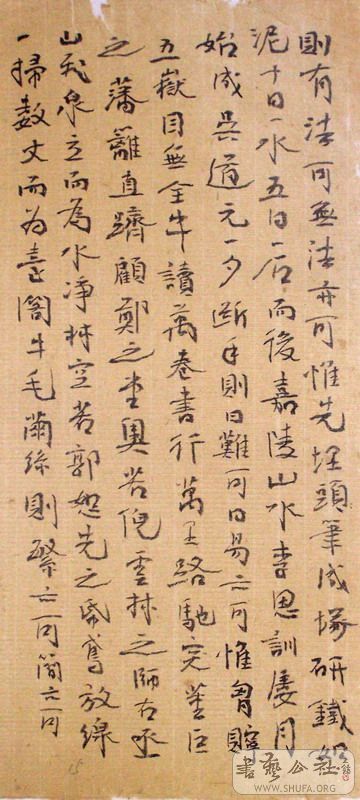 則有法可無法亦可惟先埋頭筆成塚研鐵如
泥十日一水五日一石而後嘉陵山水李思訓屢月
始成吳道元一夕斷手則曰難可曰易亦可惟胸貯
五嶽目無全牛讀萬卷書行萬里路馳突董巨
之藩籬直躋顧鄭之堂奧若倪雲林之師右丞
山飛泉立而為水淨林空若郭恕先之紙鳶放線
一掃數丈而為臺閣牛毛繭絲則繁亦可簡亦可
書藝公社
WWW.SHUFA.ORG